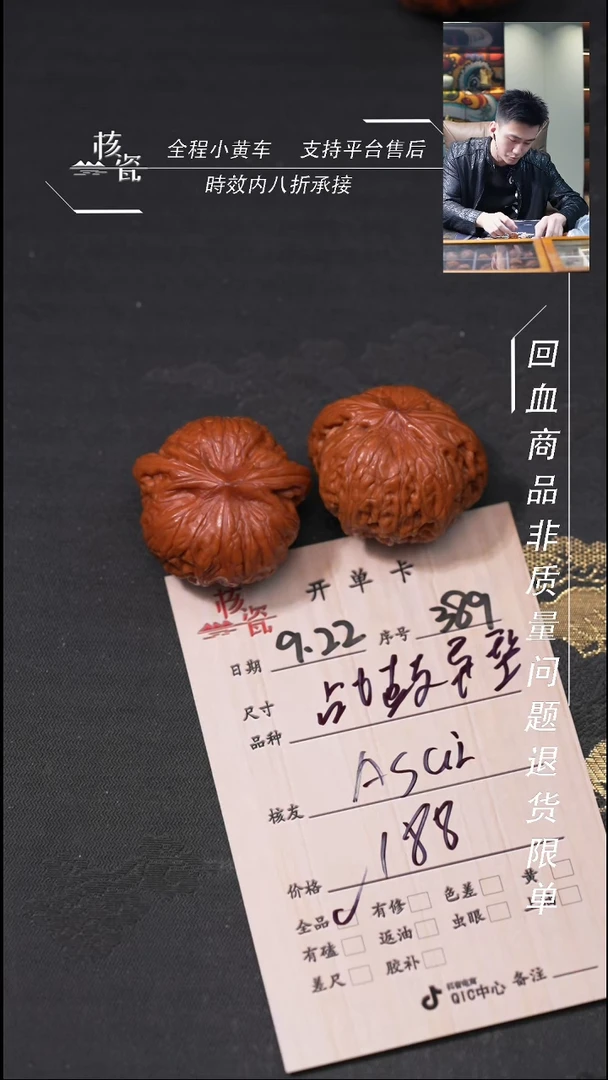 核瓷
全程小黄车 支持平台售后
時效内八折承接
回血商品非质量问题退货限单
核瓷
开单卡
日期 9.22 序号 389
尺寸
品种
核友
价格 188
全品 ✓ 有修 色差 黄
有磕 返油 虫眼
差尺 胶补
抖音电商
QIC中心 备注